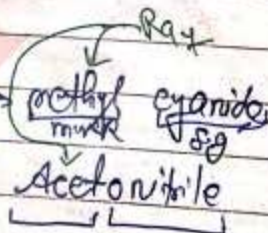 Ray
methyl cyanide
Acetonitrile